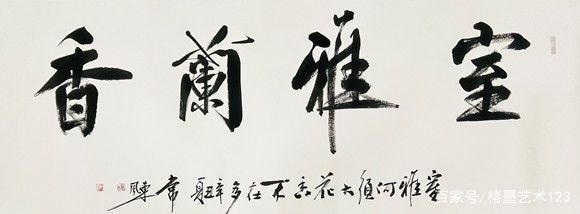 室雅蘭香
室雅何須大花香不在多辛丑夏常東風
百家号/楮墨艺术123